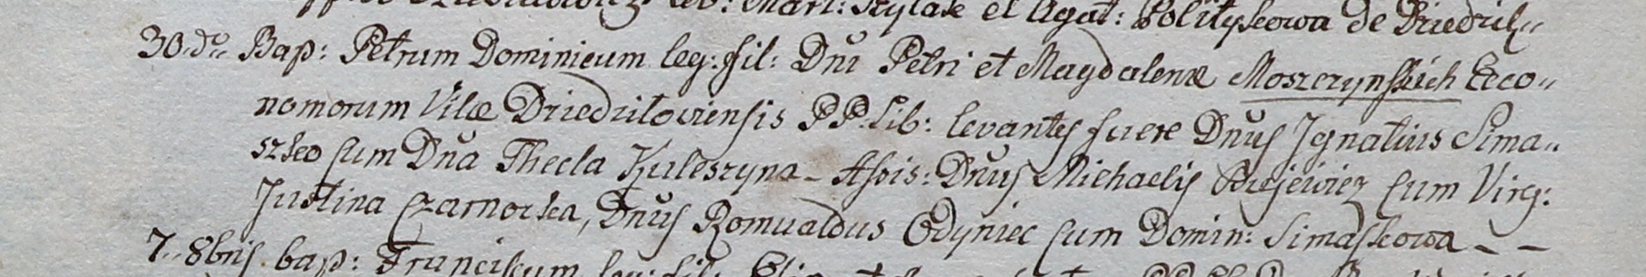 Mart: Szylak et Agat: Polityskowa de Dziedzil„
30. do Bap: Petrum Dominicum leg: fil: Dnī Petri et Magdalenæ Moszczynskich Œco„
nomorum Vilæ Dziedziłoviensis PP. Lib: levantes fuere Dnūs Ignatius Sima„
szko cum Dnā Thecla Kuleszyna – Assis: Dnūs Michaelis cum Virg:
Justina Czarnocka, Dnūs Romualdus Odyniec cum Domin: Simaszkowa – –
7„ 8bris. bap: Franciscum leg: fil: